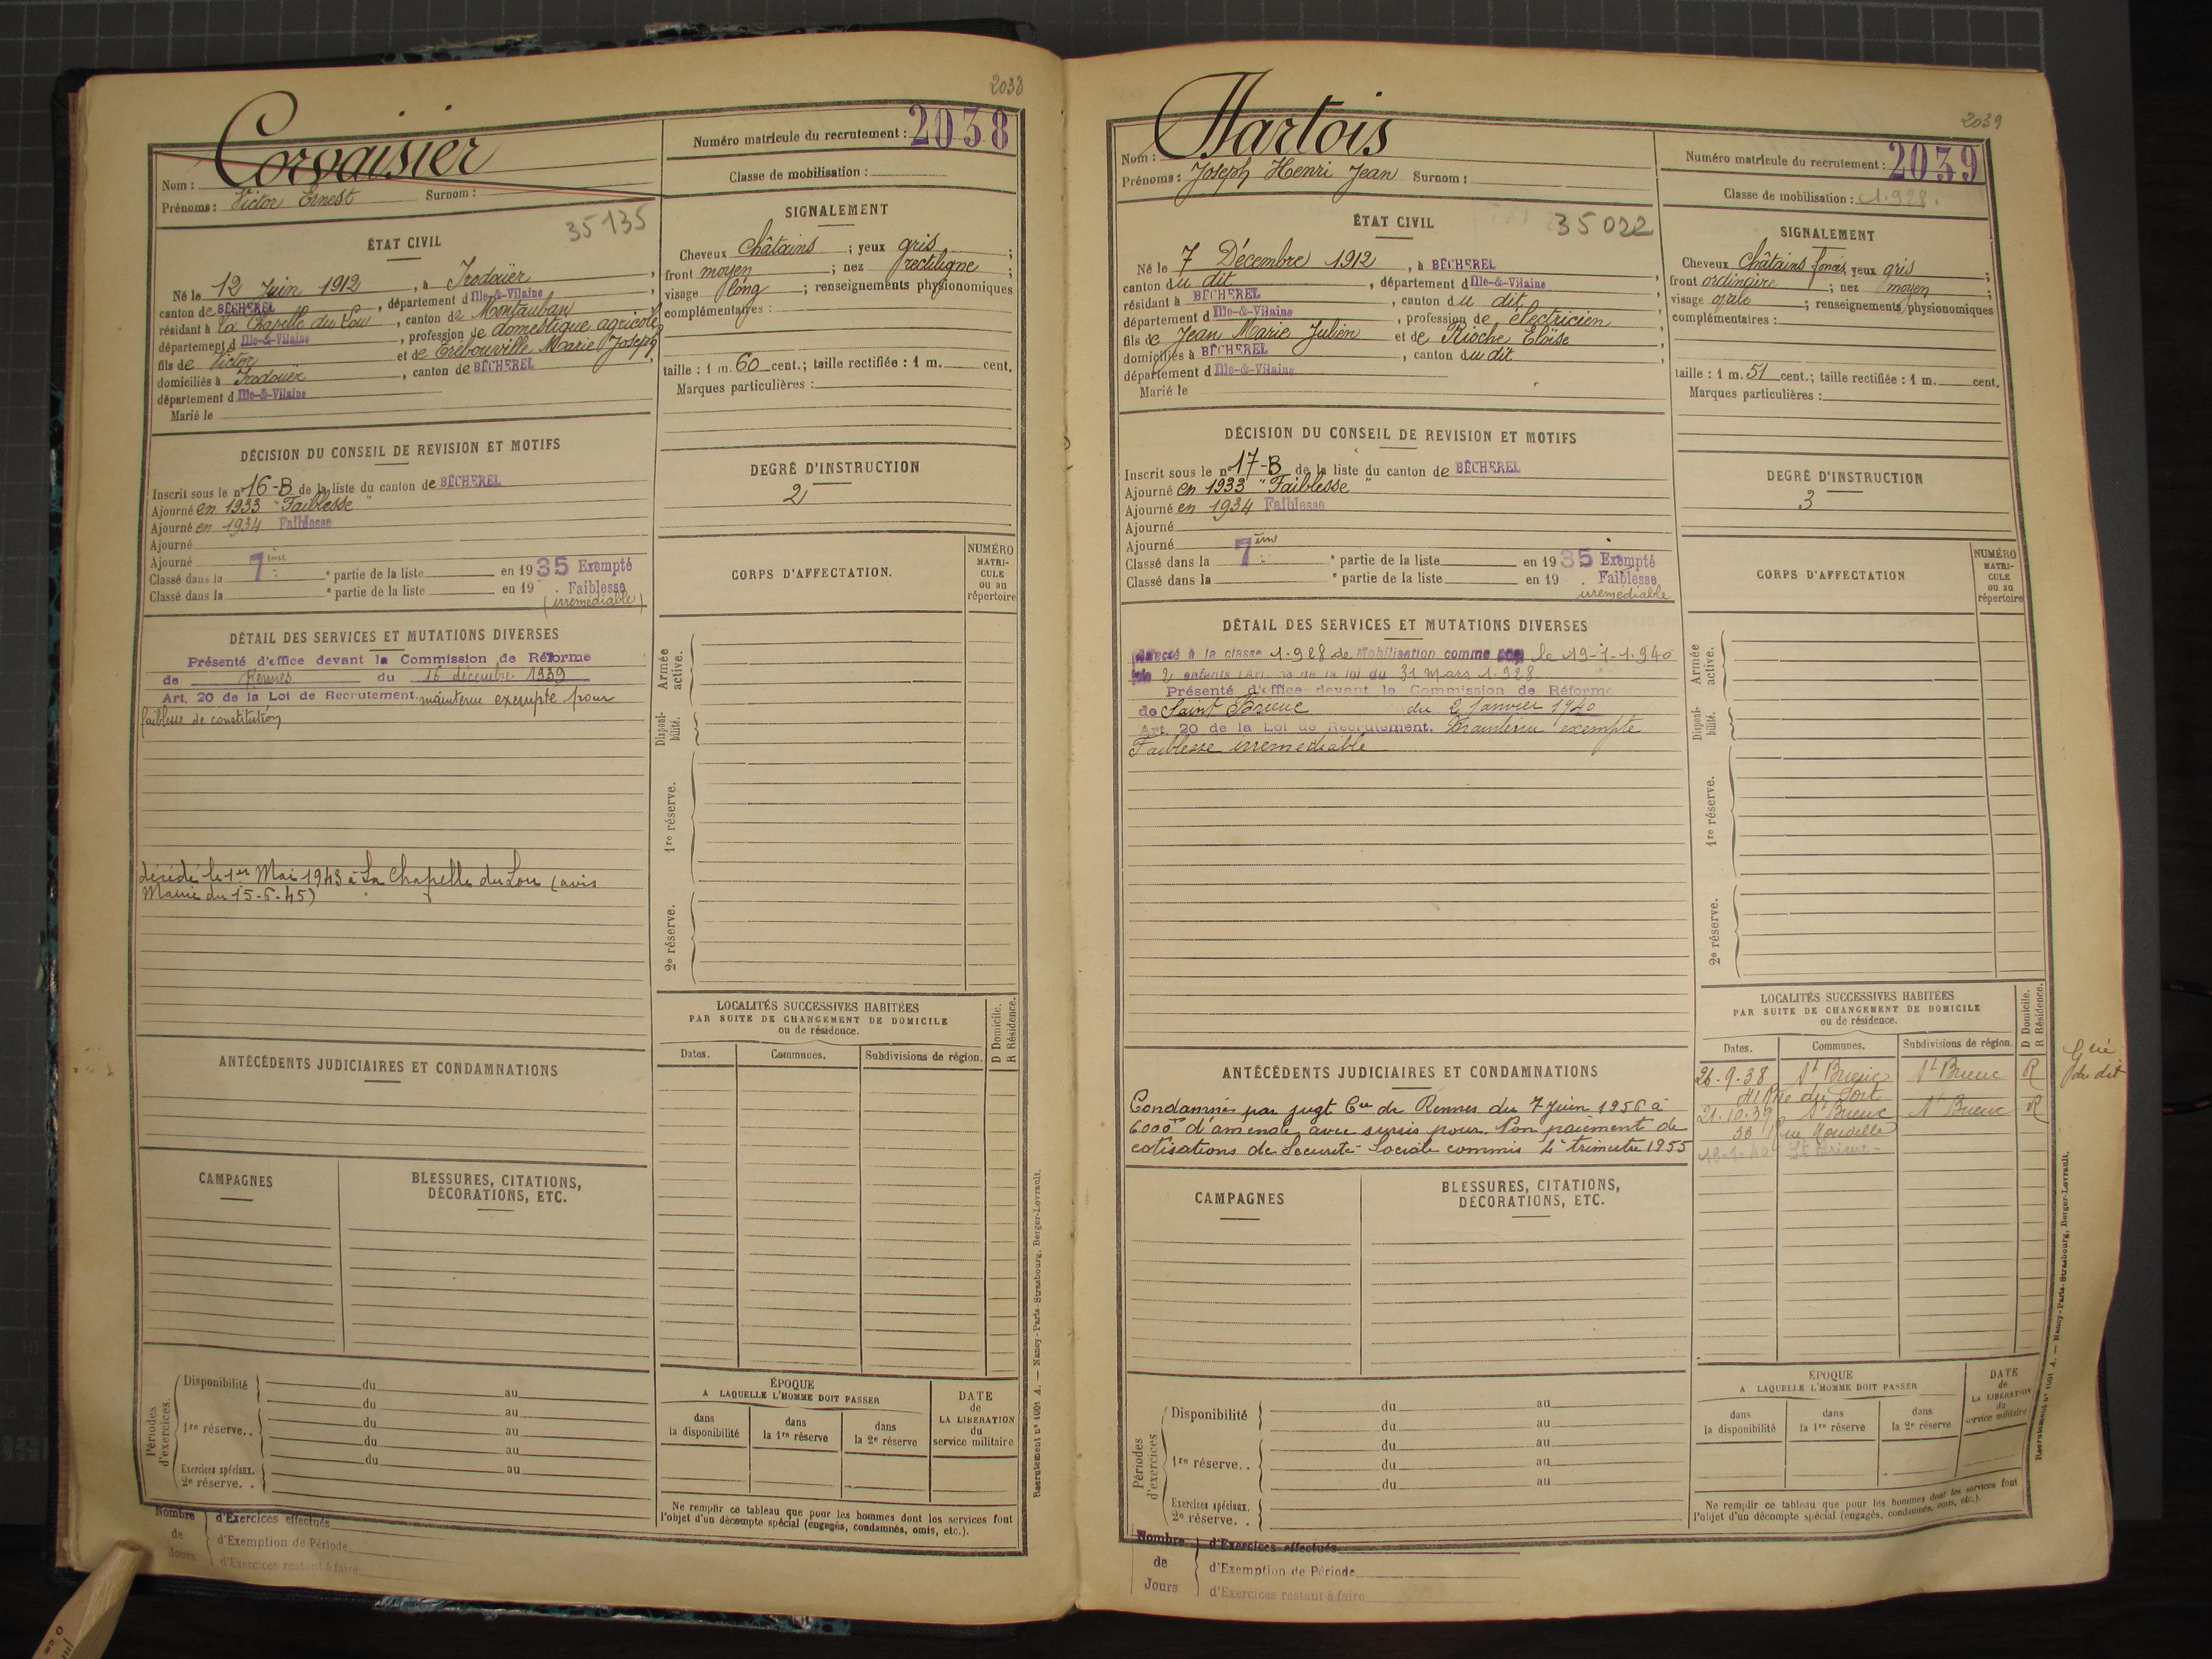 2038
Corvaisier
Nom :
Prénoms : Victor Ernest Surnom :
Numéro matricule du recrutement : 2038
Classe de mobilisation :
35135
ÉTAT CIVIL
Né le 12 Juin 1912, à Irodouër,
canton de BÉCHEREL, département d Ille-&-Vilaine
résidant à La Chapelle du Lou, canton de Montauban
département d Ille-&-Vilaine, profession de domestique agricole
fils de Victor et de Trébouville Marie Joseph
domiciliés à Irodouër, canton de BÉCHEREL,
département d Ille-&-Vilaine
Marié le
SIGNALEMENT
Cheveux châtains ; yeux gris ;
front moyen ; nez rectiligne ;
visage long ; renseignements physionomiques
complémentaires :
taille : 1 m. 60 cent.; taille rectifiée : 1 m. cent.
Marques particulières :
DÉCISION DU CONSEIL DE REVISION ET MOTIFS
Inscrit sous le nº 16-B de la liste du canton de BÉCHEREL
Ajourné en 1933 "Faiblesse"
Ajourné en 1934 Faiblesse
Ajourné
Ajourné
Classé dans la 7ème partie de la liste en 1935 Exempté
Classé dans la e partie de la liste en 19 . Faiblesse
(irremédiable)
DEGRÉ D'INSTRUCTION
2
CORPS D'AFFECTATION.
NUMÉRO
MATRI-
CULE
ou au
répertoire
DÉTAIL DES SERVICES ET MUTATIONS DIVERSES
Présenté d'office devant la Commission de Réforme
de Rennes du 16 décembre 1939
Art. 20 de la Loi de Recrutement. maintenu exempté pour
faiblesse de constitution
décédé le 1er Mai 1943 à La Chapelle du Lou (avis
Mairie du 15-6-45)
Armée
active.
Disponi-
bilité.
1re réserve.
2e réserve.
LOCALITÉS SUCCESSIVES HABITÉES
PAR SUITE DE CHANGEMENT DE DOMICILE
ou de résidence.
D Domicile.
R Résidence.
Dates. Communes. Subdivisions de région.
ANTÉCÉDENTS JUDICIAIRES ET CONDAMNATIONS
CAMPAGNES
BLESSURES, CITATIONS,
DÉCORATIONS, ETC.
Périodes
d'exercices.
Disponibilité du au
du au
1re réserve.. du au
du au
Exercices spéciaux. du au
2e réserve. .
ÉPOQUE
A LAQUELLE L'HOMME DOIT PASSER
dans
la disponibilité
dans
la 1re réserve
dans
la 2e réserve
DATE
de
LA LIBÉRATION
du
service militaire
Ne remplir ce tableau que pour les hommes dont les services font
l'objet d'un décompte spécial (engagés, condamnés, omis, etc.).
Nombre
de
Jours
d'Exercices effectués
d'Exemption de Période
d'Exercices restant à faire
Recrutement nº 1051 A. — Nancy-Paris-Strasbourg, Berger-Levrault.
2039
Hartois
Nom :
Prénoms : Joseph Henri Jean Surnom :
Numéro matricule du recrutement : 2039
Classe de mobilisation : 1.928.
35022
ÉTAT CIVIL
Né le 7 Décembre 1912, à BÉCHEREL
canton du dit, département d Ille-&-Vilaine,
résidant à BÉCHEREL, canton du dit,
département d Ille-&-Vilaine, profession de électricien
fils de Jean Marie Julien et de Rioche Eloïse
domiciliés à BÉCHEREL, canton du dit,
département d Ille-&-Vilaine
Marié le
SIGNALEMENT
Cheveux châtains foncés, yeux gris ;
front ordinaire ; nez moyen ;
visage ovale ; renseignements physionomiques
complémentaires :
taille : 1 m. 51 cent.; taille rectifiée : 1 m. cent.
Marques particulières :
DÉCISION DU CONSEIL DE REVISION ET MOTIFS
Inscrit sous le nº 17-B de la liste du canton de BÉCHEREL
Ajourné en 1933 "Faiblesse"
Ajourné en 1934 Faiblesse
Ajourné
Ajourné
Classé dans la 7ème partie de la liste en 1935 Exempté
Classé dans la e partie de la liste en 19 . Faiblesse
irremédiable
DEGRÉ D'INSTRUCTION
3
CORPS D'AFFECTATION
NUMÉRO
MATRI-
CULE
ou au
répertoire
DÉTAIL DES SERVICES ET MUTATIONS DIVERSES
à la classe 1.928 de Mobilisation comme le 19-1-1.940
2 enfants de la loi du 31 Mars 1.928.
Présenté d'office devant la Commission de Réforme
de Saint Brieuc du 2 Janvier 1940
Art. 20 de la Loi de Recrutement. Maintenu exempté
Faiblesse irremédiable
Armée
active.
Disponi-
bilité.
1re réserve.
2e réserve.
LOCALITÉS SUCCESSIVES HABITÉES
PAR SUITE DE CHANGEMENT DE DOMICILE
ou de résidence.
D Domicile.
R Résidence.
Dates. Communes. Subdivisions de région.
26.9.38 St Brieuc St Brieuc R
du dit
41 Rue du Port
21.10.39 St Brieuc St Brieuc R
38 Rue Houvelle
St Brieuc
ANTÉCÉDENTS JUDICIAIRES ET CONDAMNATIONS
Condamné par jugt Cel de Rennes du 7 Juin 1956 à
6000f d'amende avec sursis pour Non paiement de
cotisations de Sécurité Sociale commis 4e trimestre 1955
CAMPAGNES
BLESSURES, CITATIONS,
DÉCORATIONS, ETC.
Périodes
d'exercices.
Disponibilité du au
du au
1re réserve. . du au
du au
du au
Exercices spéciaux.
2e réserve. .
ÉPOQUE
A LAQUELLE L'HOMME DOIT PASSER
dans
la disponibilité
dans
la 1re réserve
dans
la 2e réserve
DATE
de
LA LIBÉRATION
du
service militaire
Ne remplir ce tableau que pour les hommes dont les services font
l'objet d'un décompte spécial (engagés, condamnés, omis, etc.).
Nombre
de
Jours
d'Exercices effectués
d'Exemption de Période
d'Exercices restant à faire
Recrutement nº 1051 A. — Nancy-Paris-Strasbourg, Berger-Levrault.